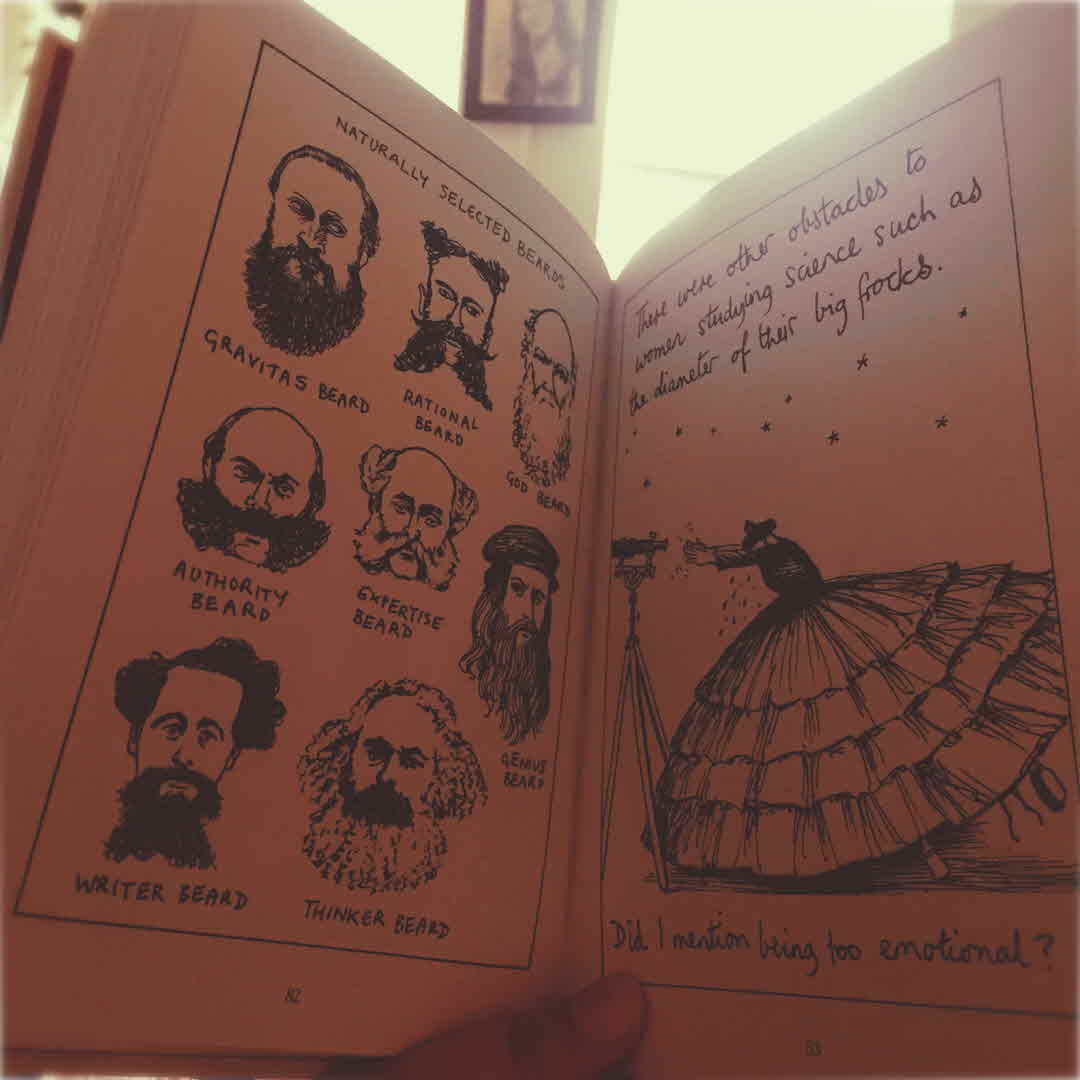 NATURALLY SELECTED BEARDS
GRAVITAS BEARD
RATIONAL
BEARD
GOD BEARD
AUTHORITY
BEARD
EXPERTISE
BEARD
GENIUS
BEARD
WRITER BEARD
THINKER BEARD
82
There were other obstacles to
women studying science such as
the diameter of their big frocks.
Did I mention being too emotional?
83